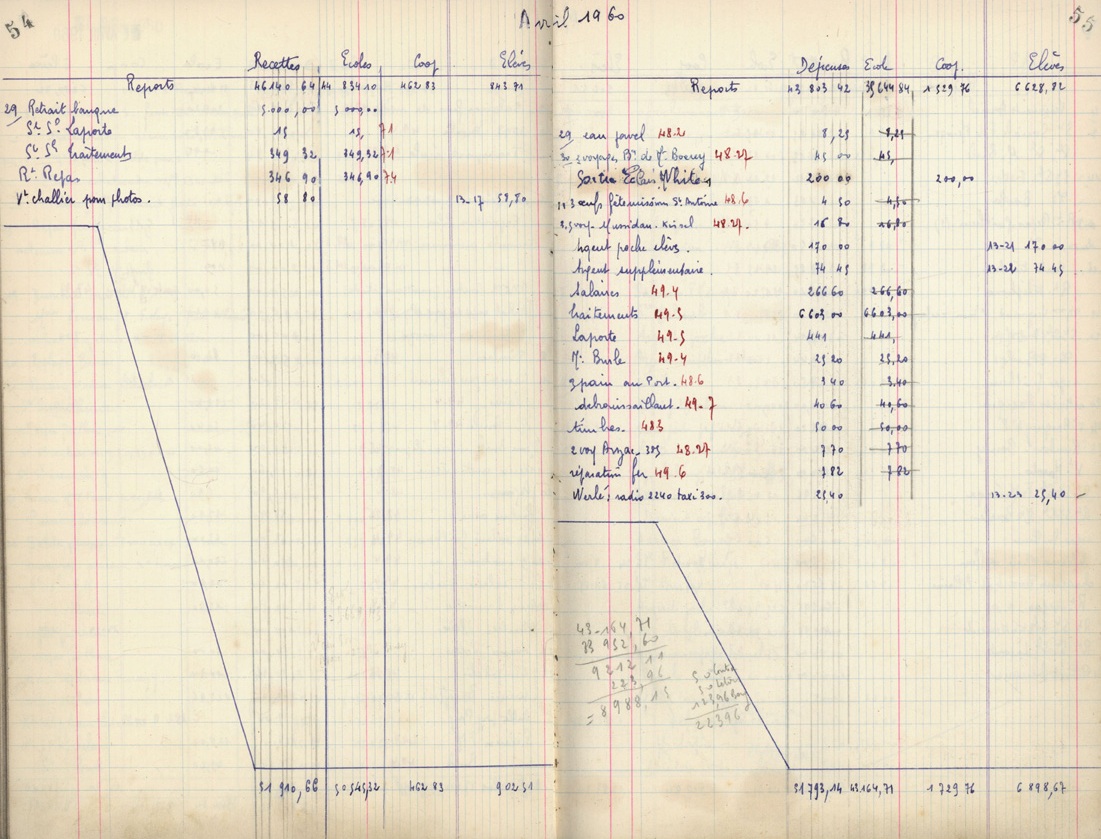 54
Avril 1960
55
Recettes Ecoles Coop Elèves
Reports 46140 64 44 834 10 462 83 843 71
29 Retrait banque 5000,00 5000,00
St Se Laporte 15 15, 71
St Se traitements 349 32 349,32 71
Rt Repas 346 90 346,90 74
Vt challier pour photos. 58 80 13-17 58,80
51 910,66 50545,32 462 83 902 51
Dépenses Ecole Coop. Elèves
Reports 43 803 42 35644 84 1 529 76 6 628,82
29 eau javel 48.2 8,25 8,25
30 2 voyages Bx de M. 48.27 45 00 45,
Sortie Eclair 200 00 200,00
3 œufs St Antoine 48.6 4 50 4,50
voy. Mussidan. 48.27. 16 80 16,80
Argent poche élèves. 170 00 13-21 170 00
Argent supplémentaire. 74 45 13-22 74 45
Salaires 49.4 266 60 266,60
traitements 49.5 6603 00 6603,00
Laporte 49-5 441 441,
Mr Burle 49-4 25 20 25,20
3 pain au Port. 48.6 3 40 3,40
debroussaillant. 49.7 40 60 40,60
timbres. 483 50 00 50,00
2 voy 48.27 7 70 7 70
réparation fer 49.6 7 82 7 82
Werlé: radio 2240 taxi 300. 25,40 13-23 25,40
43-164,71
33 952,60
9212 11
223,96
= 8988,15
123,96
22396
51793,14 43164,71 1 729 76 6 898,67